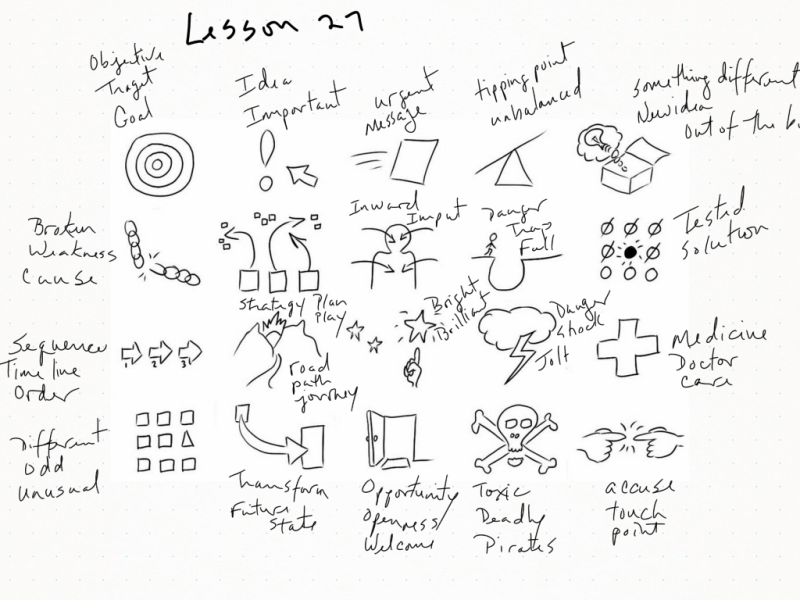 Lesson 27
Objective
Traget
Goal
Idea
Important
urgent
Message
tipping point
unbalanced
something different
New idea
out of the b
Broken
Weakness
Cause
Strategy Plan
play
Inward
Imput
Danger
Trap
Fall
Tested
solution
Sequence
Time line
Order
1 2 3
road
path
journey
Bright
Brilliant
Danger
Shock
Jolt
Medicine
Doctor
care
Different
odd
unusual
Transform
Future
State
Opportunity
Openness/
Welcome
Toxic
Deadly
Pirates
accuse
touch
point